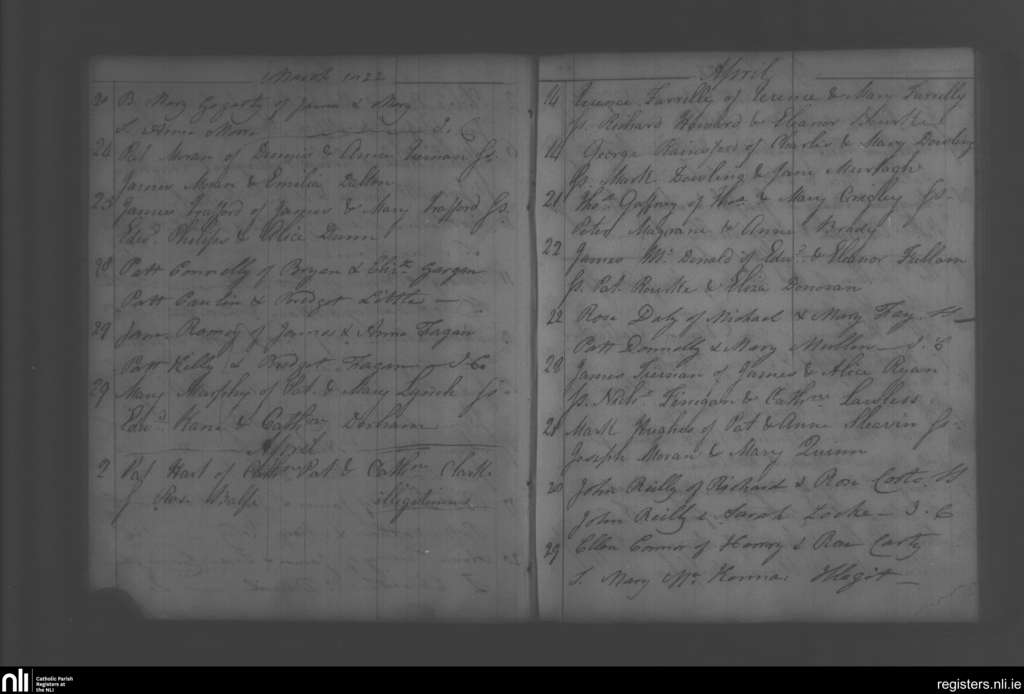 March 1822
20 B. Mary Gogarty of James & Mary
S. Anne Moore J. C
24 Pat Moran of Dennis & Anne Tiernan Ss.
James Moran & Emilia Dalton
25 James Trafford of James & Mary Trafford Ss.
Edwd. Philips & Alice Dunn
28 Patt Connolly of Bryan & Elizth Gargan
Patt Carolin & Bridget Little
29 James of James & Anne Fagan
Patt Kelly & Bridget Fagan J C
29 Mary Murphy of Pat & Mary Lynch Ss.
Edwd. Kane & Cathne Durham
April
2 Pat Hart of Pat & Cathne Clarke
Rose illegitimus
April
14 Terence Farrelly of Terence & Mary Farrelly
Ss. Richard Howard & Eleanor
14 George Rainsford of Charles & Mary Dowling
Ss. Mark Dowling & Jane Murtagh
21 Thos. Gaffney of Thos. & Mary Ss.
Peter Magrane & Anne Brady
22 James Mc. Donald of Edwd. & Eleanor Fullam
Ss. Pat. Rourke & Eliza Donovan
22 Rose Daly of Michael & Mary Fay Ss
Patt Donnolly & Mary Mullen J. C
28 James Tiernan of James & Alice Ryan
Ss. Nichs. Finegan & Cathne Lawless
28 Mark Hughes of Pat & Anne Slevin Ss.
Joseph Moran & Mary Quinn
John Reilly of Richard & Rose Ss
John Reilly & Sarah J. C
29 Ellen Connor of Henry & Rose Carty
S. Mary Mc. Illegit
nli
Catholic Parish
Registers at
the NLI
registers.nli.ie